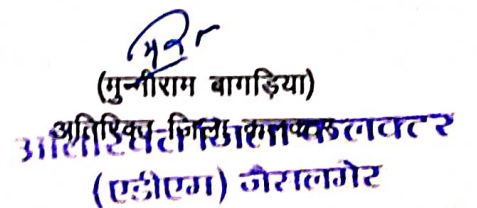 (मुन्नीराम बागड़िया)
अतिरिक्त जिला कलक्टर
अतिरिक्त जिला कलक्टर
(एडीएम) जैसलमेर